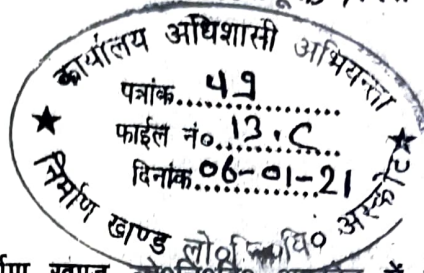 कार्यालय अधिशासी अभियन्ता
पत्रांक....49..............
फाईल नं०.13.C.......
दिनांक.06-01-21
निर्माण खण्ड लो० वि० अस्कोट
खण्ड